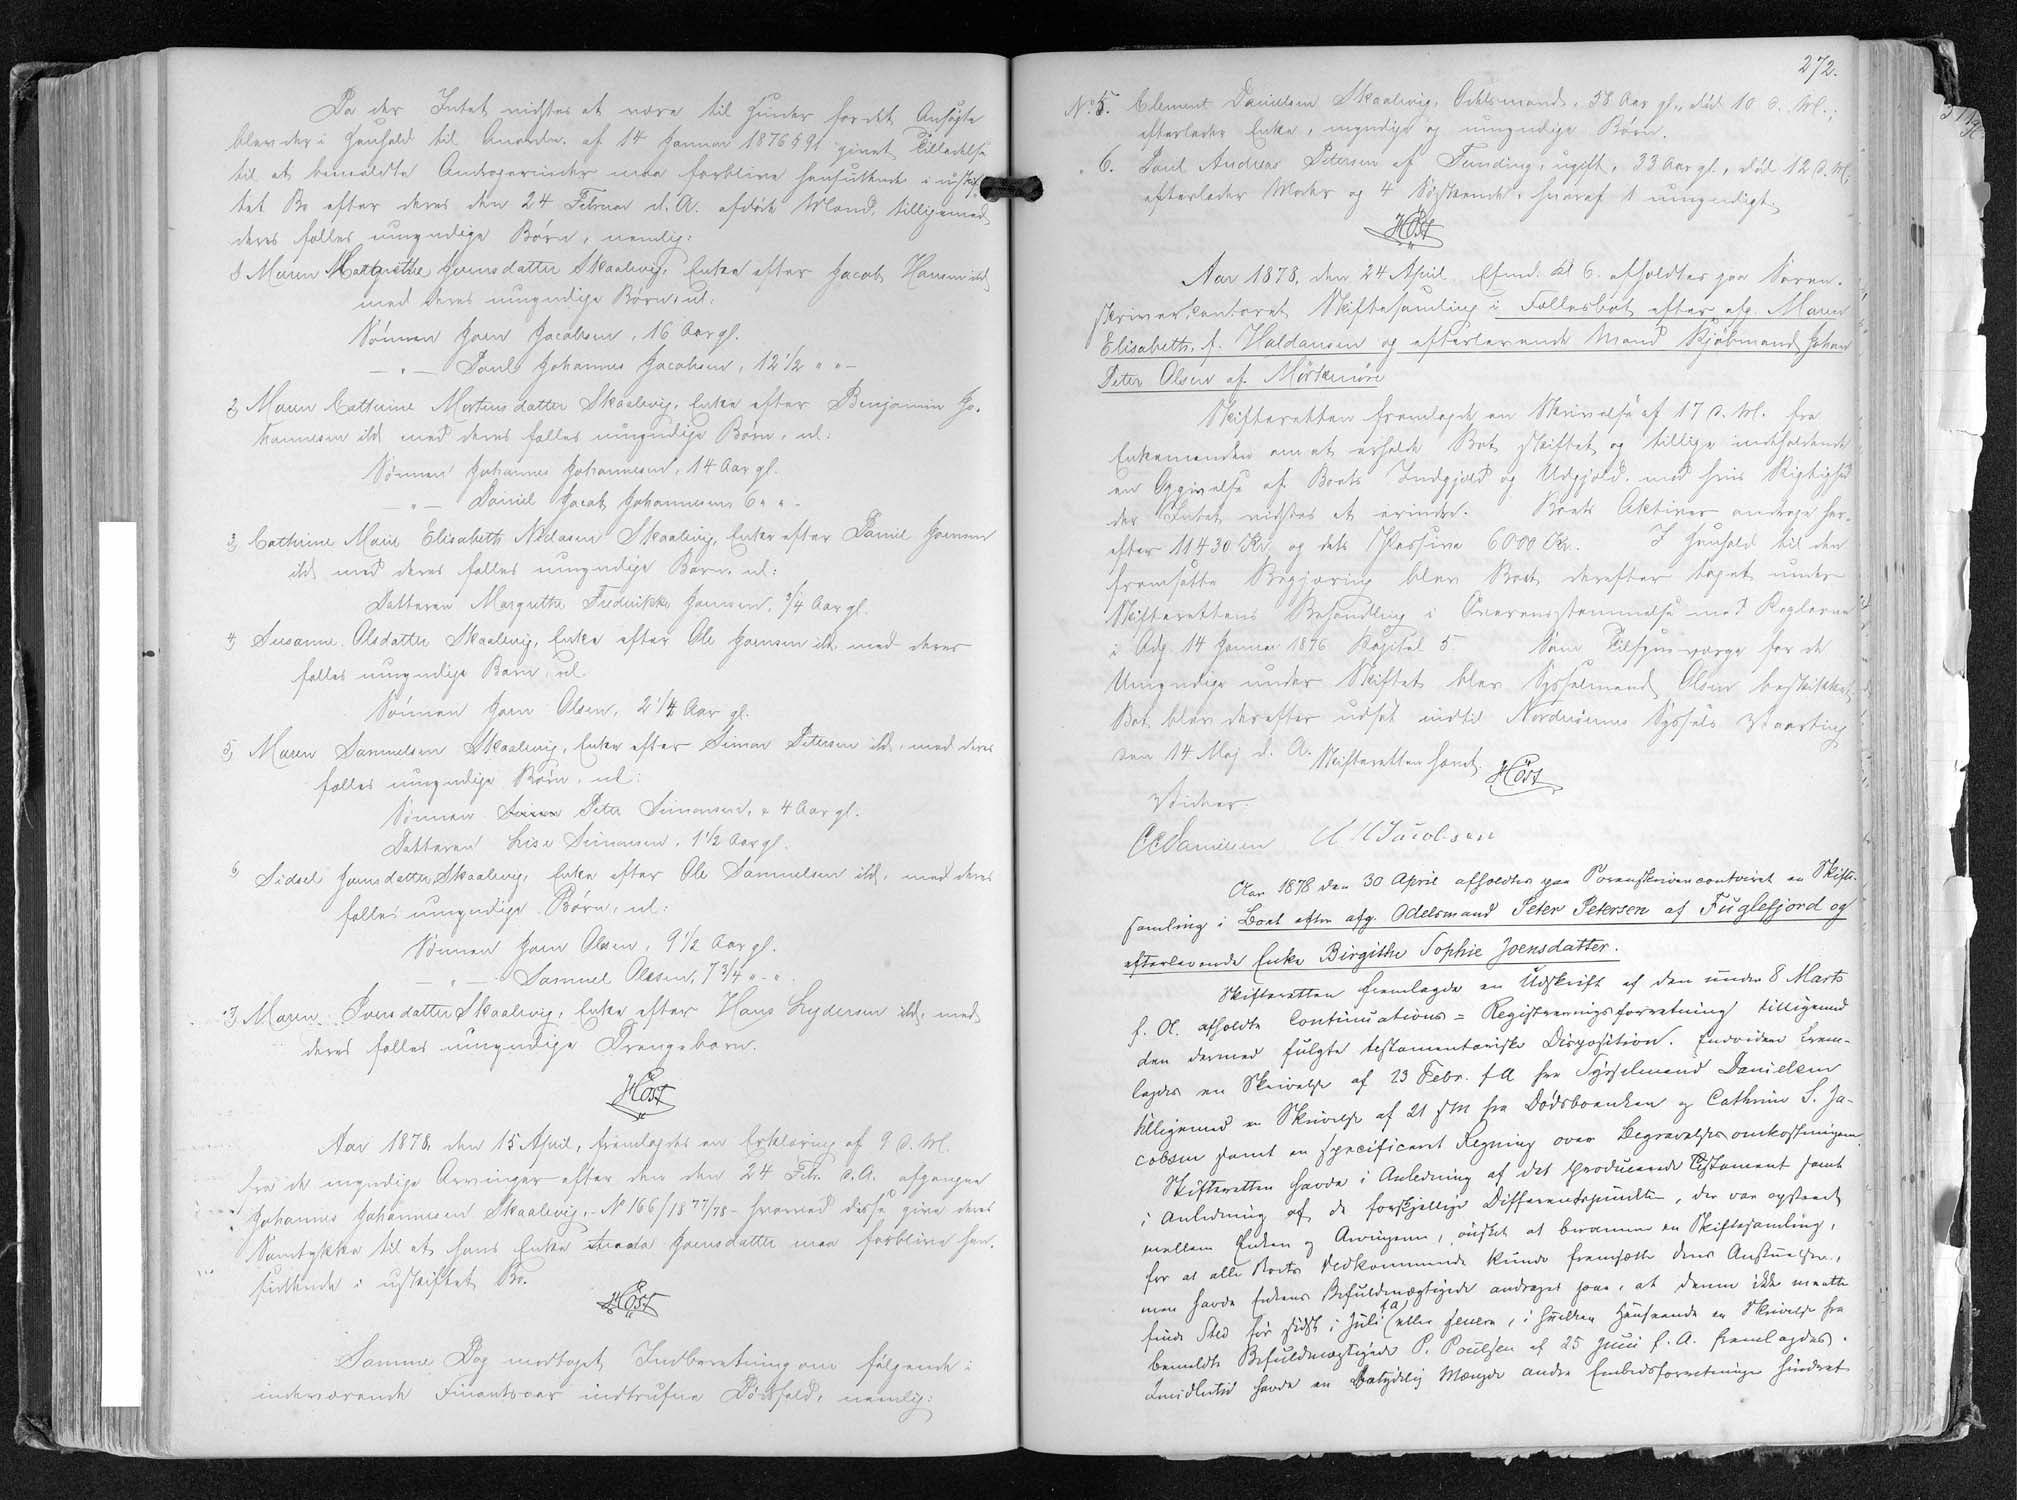 Da der Intet vidstes at være til Hinder for det Ansøgte
blev der i Henhold til Anordn. af 14 Januar 1876 § 91 givet Tilladelse
til at bemeldte Andragerinder maa forblive hensiddende i uskif-
tet Bo efter deres den 24 Februar d. A. afdøde Mænd, tilligemed
deres fælles umyndige Børn, nemlig:
1) Maren Margrethe Joensdatter Skaalevig, Enke efter Jacob Hansen ibd
med deres umyndige Børn, nl:
Sønnen Joen Jacobsen, 16 Aar gl.
— " — Poul Johannes Jacobsen, 12 1/2 " " —
2) Maren Cathrine Mortensdatter Skaalevig, Enke efter Benjamin Jo-
hannesen ibd med deres fælles umyndige Børn, nl:
Sønnen Johannes Johannesen, 14 Aar gl.
— " — Daniel Jacob Johannesen 6 " " -
3) Cathrine Marie Elisabeth Niclasen Skaalevig, Enke efter Daniel Joensen
ibd med deres fælles umyndige Barn, nl:
Datteren Margrethe Frederikke Joensen, 3/4 Aar gl.
4) Susanne Olsdatter Skaalevig, Enke efter Ole Joensen ibd, med deres
fælles umyndige Barn, nl.
Sønnen Joen Olsen, 2 1/4 Aar gl.
5) Maren Samuelsen Skaalevig, Enke efter Simon Petersen ibd, med deres
fælles umyndige Børn, nl:
Sønnen Peter Simonsen, " 4 Aar gl.
Datteren Lise Simonsen, 1 1/2 Aar gl.
6) Sidsel Joensdatter Skaalevig, Enke efter Ole Samuelsen ibd, med deres
fælles umyndige Børn, nl:
Sønnen Joen Olsen, 9 1/2 Aar gl.
— " — Samuel Olesen, 7 3/4 " - "
7) Maren Iversdatter Skaalevig, Enke efter Hans Lydersen ibd, med
deres fælles umyndige Drengebarn.
Høst
Aar 1878 den 15 April, fremlagdes en Erklæring af 9 d. M.
fra de myndige Arvinger efter den den 24 Febr. d. A. afgangne
Johannes Johannesen Skaalevig, - No 166/1877/78 - hvorved disse give deres
Samtykke til at hans Enke Joensdatter maa forblive hen-
siddende i uskiftet Bo.
Høst
Samme Dag modtoges Indberetning om følgende i
indeværende Finantsaar indtrufne Dødsfald, nemlig:
272.
No 5. Clement Danielsen Skaalevig, Odelsmand, 58 Aar gl., død 10 d. M.;
efterlader Enke, myndige og umyndige Børn.
" 6. Poul Andreas Petersen af Funding, ugift, 33 Aar gl., død 12 d. M.,
efterlader Moder og 4 Søskende, hvoraf 1 umyndigt.
Høst
Aar 1878, den 24 April Efmd. Kl 6. afholdtes paa Soren-
skriverkontoret Skiftesamling i Fællesboet efter afg. Maren
Elisabeth, f. Haldansen og efterlevende Mand Kjøbmand Johan
Peter Olsen af Mørkenøre
Skifteretten fremlagde en Skrivelse af 17 d. M. fra
Enkemanden om at erholde Boet skiftet og tillige indeholdende
en Opgivelse af Boets Indgjæld og Udgjæld, mod hvis Rigtighed
der Intet vidstes at erindre. Boets Aktiver androge her-
efter 11430 Kr. og dets Passiva 6000 Kr. I Henhold til den
fremsatte Begjæring blev Boet derefter taget under
Skifterettens Behandling i Overensstemmelse med Reglerne
i Adg. 14 Januar 1876 Kapitel 5. Som Tilsynsværge for de
Umyndige under Skiftet blev Sysselmand Olsen beskikket
Boet blev derefter udsat indtil Norderøernes Syssels Vaarting
den 14 Maj d. A. Skifteretten hævet.
Høst
Vidner:
CCDanielsen Jacobsen
Aar 1878 den 30 April afholdtes paa Sorenskrivercontoiret en Skifte-
samling i Boet efter afg. Odelsmand Peter Petersen af Fuglefjord og
efterlevende Enke Birgithe Sophie Joensdatter.
Skifteretten fremlagde en Udskrift af den under 8 Marts
f. A. afholdte Continuations = Registreringsforretning tilligemed
den dermed fulgte testamentariske Disposition. Endvidere frem-
lagdes en Skrivelse af 23 Febr. f A fra Sysselmand Danielsen
tilligemed en Skrivelse af 21 s M fra Dødsboenken og Cathrine S. Ja-
cobsen samt en specificeret Regning over Begravelsesomkostningerne.
Skifteretten havde i Anledning af det producerede Testament samt
i Anledning af de forskjellige Differentspunkter, der var opstaaet
mellem Enken og Arvingerne, ønsket at beramme en Skiftesamling,
for at alle Boets Vedkommende kunde fremsætte deres Anskuelser,
men havde Enkens Befuldmægtigede andraget paa, at denne ikke maatte
finde Sted før sidst i Juli (f A) eller senere, i hvilken Henseende en Skrivelse fra
bemeldte Befuldmægtigede P. Poulsen af 25 Juni f. A. fremlagdes.
Imidlertid havde en betydelig Mængde andre Embedsforretninger hindret